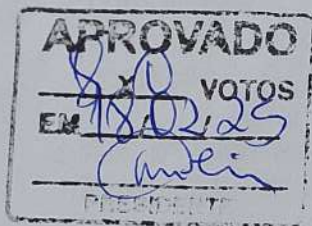 APROVADO
8 x 0 VOTOS
EM 18/02/25
PRESIDENTE